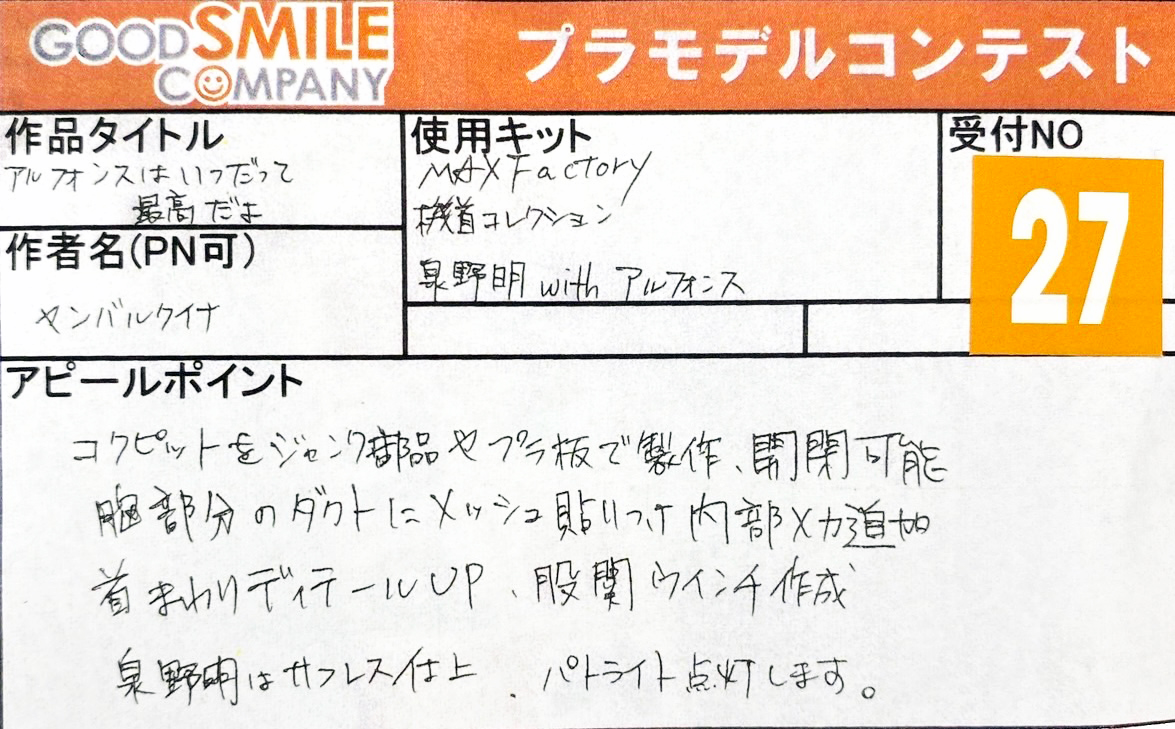 GOOD SMILE
COMPANY
プラモデルコンテスト
作品タイトル
アルフォンスはいつだって
最高だよ
作者名(PN可)
ヤンバルクイナ
使用キット
MAX Factory
機首コレクション
泉野明 with アルフォンス
受付NO
27
アピールポイント
コクピットをジャンク部品やプラ板で製作、開閉可能
胸部分のダクトにメッシュ貼りつけ内部メカ追加
首まわりディテールUP、股関ウインチ作成
泉野明はサフレス仕上、パトライト点灯します。